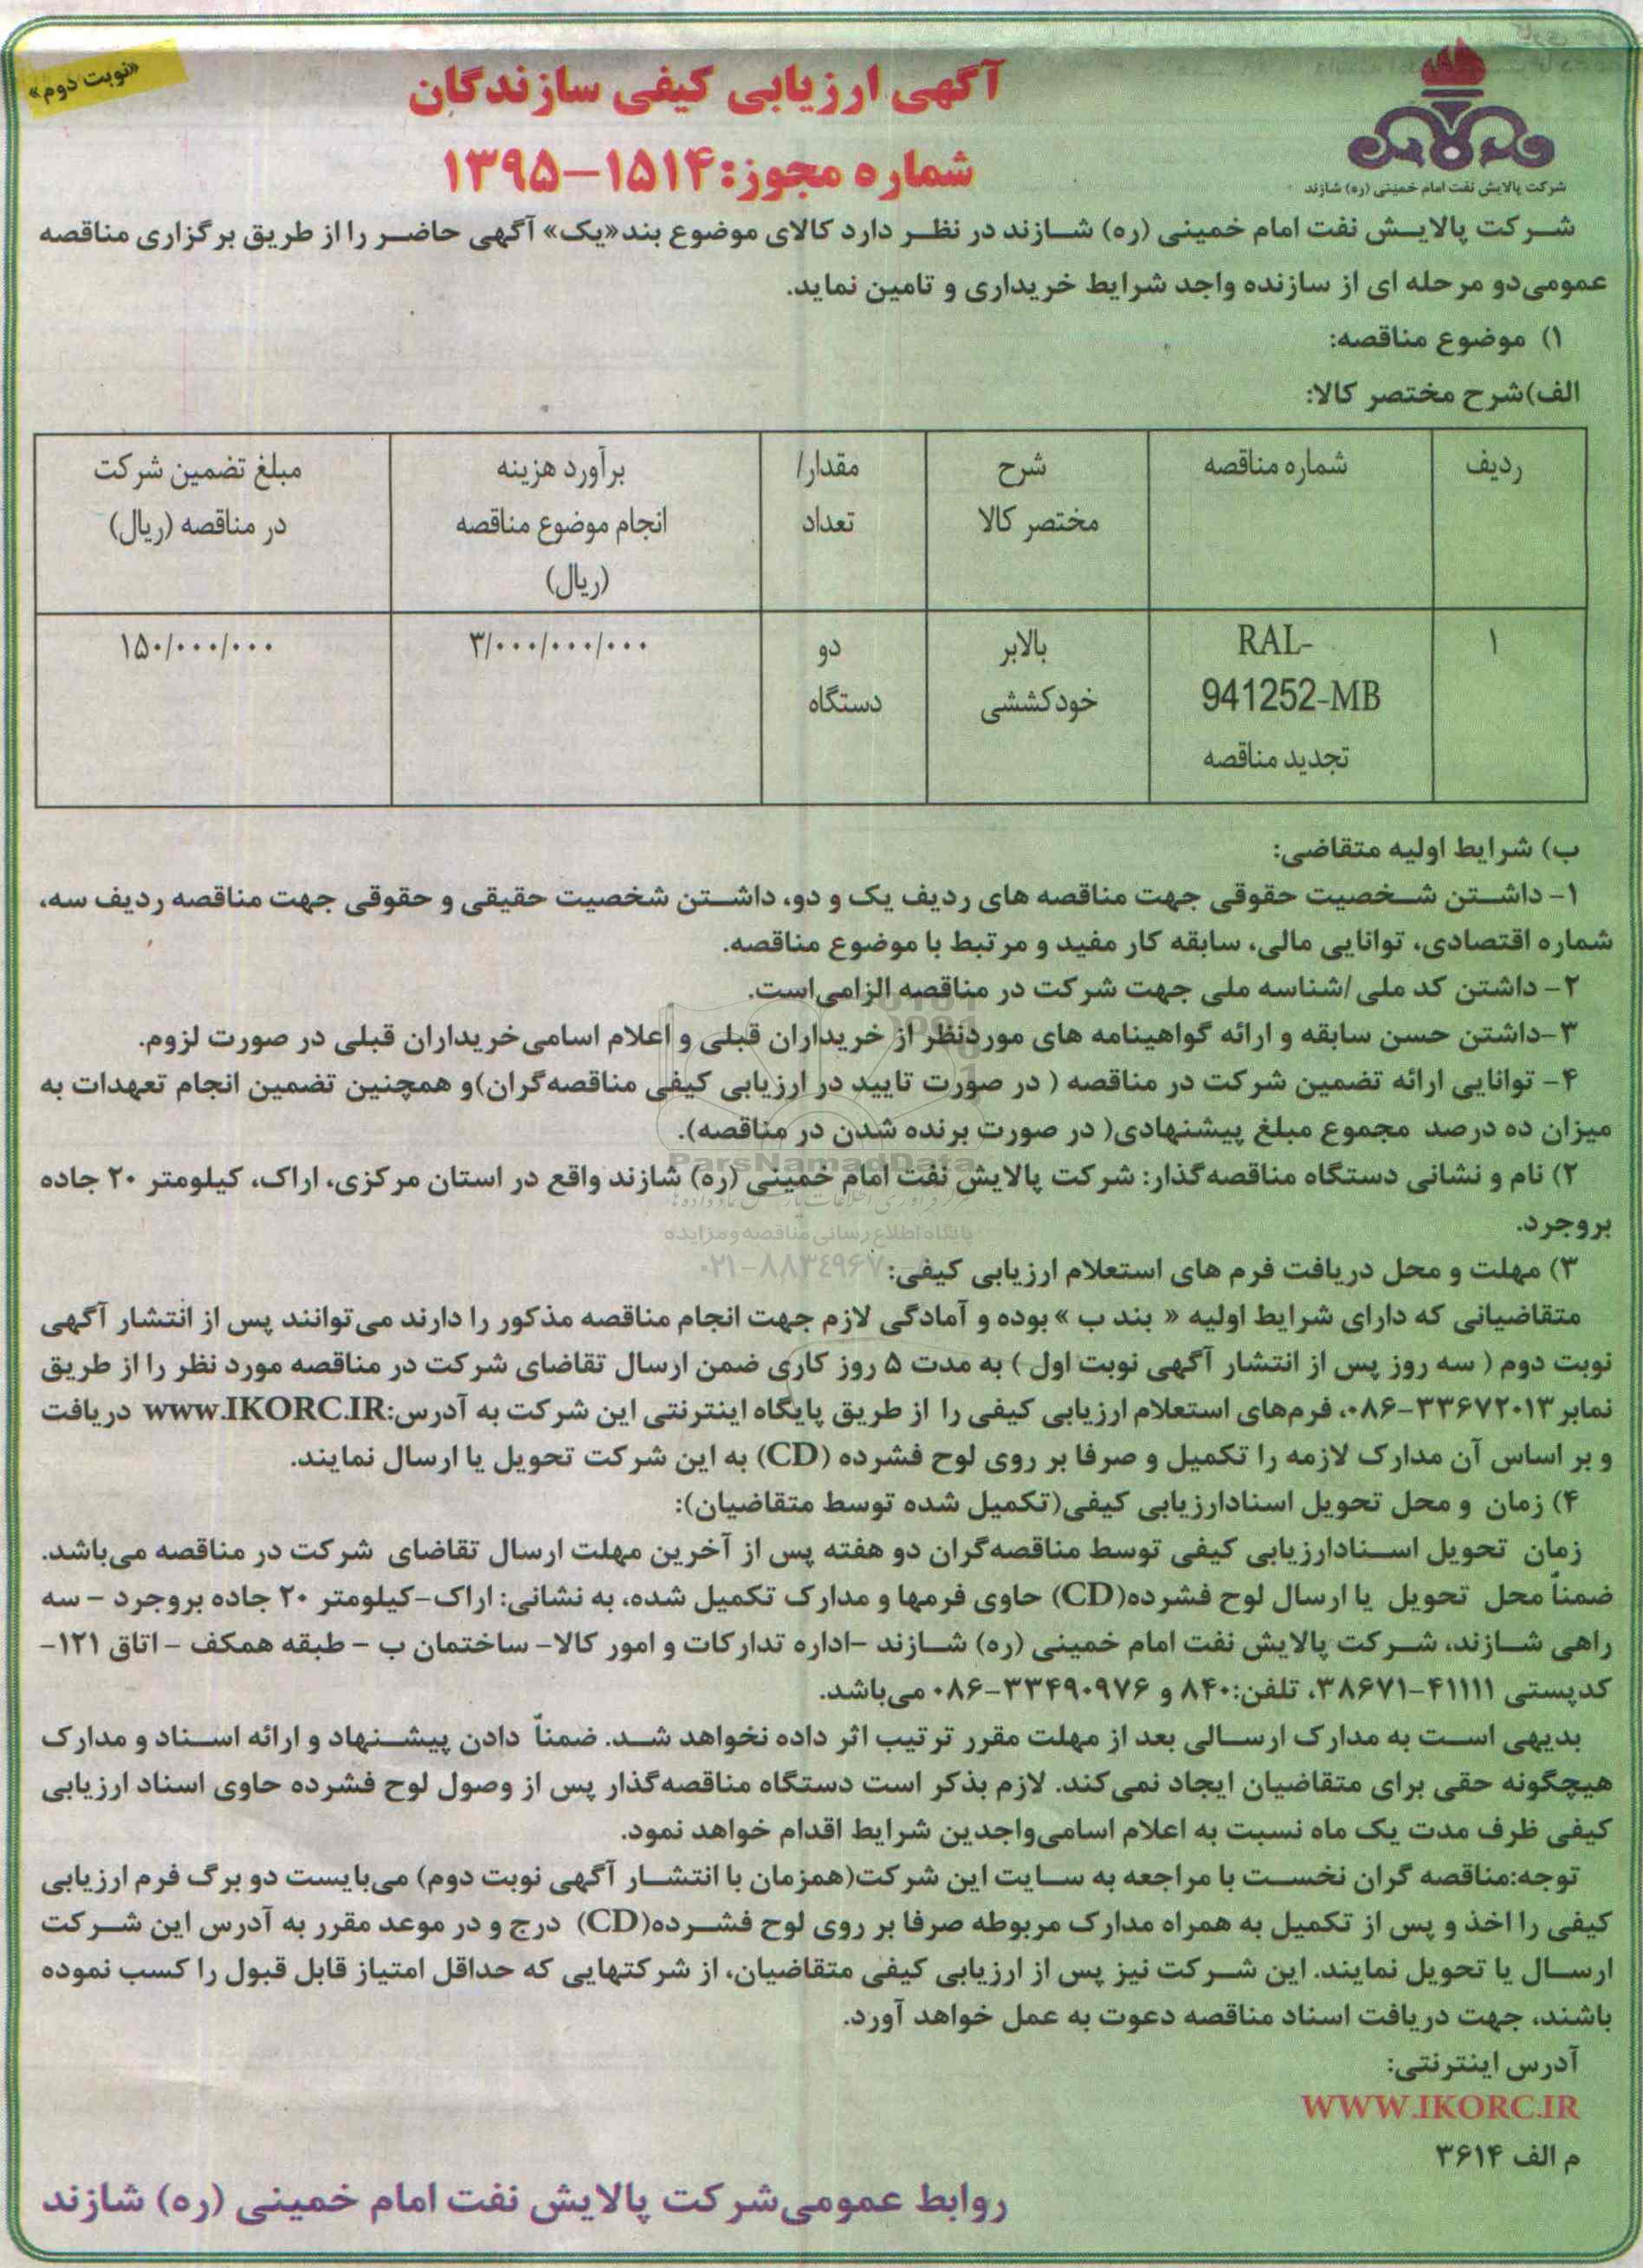 «نوبت دوم»
آگهی ارزیابی کیفی سازندگان
شماره مجوز:۱۵۱۴-۱۳۹۵
شرکت پالایش نفت امام خمینی (ره) شازند
شرکت پالایش نفت امام خمینی (ره) شازند در نظر دارد کالای موضوع بند«یک» آگهی حاضر را از طریق برگزاری مناقصه
عمومی‌دو مرحله ای از سازنده واجد شرایط خریداری و تامین نماید.
۱) موضوع مناقصه:
الف)شرح مختصر کالا:
ردیف شماره مناقصه شرح مختصر کالا مقدار/ تعداد برآورد هزینه انجام موضوع مناقصه (ریال) مبلغ تضمین شرکت در مناقصه (ریال)
۱ RAL-941252-MB تجدید مناقصه بالابر خودکششی دو دستگاه ۳/۰۰۰/۰۰۰/۰۰۰ ۱۵۰/۰۰۰/۰۰۰
ب) شرایط اولیه متقاضی:
۱- داشتن شخصیت حقوقی جهت مناقصه های ردیف یک و دو، داشتن شخصیت حقیقی و حقوقی جهت مناقصه ردیف سه،
شماره اقتصادی، توانایی مالی، سابقه کار مفید و مرتبط با موضوع مناقصه.
۲- داشتن کد ملی /شناسه ملی جهت شرکت در مناقصه الزامی‌است.
۳-داشتن حسن سابقه و ارائه گواهینامه های موردنظر از خریداران قبلی و اعلام اسامی‌خریداران قبلی در صورت لزوم.
۴- توانایی ارائه تضمین شرکت در مناقصه ( در صورت تایید در ارزیابی کیفی مناقصه‌گران)و همچنین تضمین انجام تعهدات به
میزان ده درصد مجموع مبلغ پیشنهادی( در صورت برنده شدن در مناقصه).
۲) نام و نشانی دستگاه مناقصه‌گذار: شرکت پالایش نفت امام خمینی (ره) شازند واقع در استان مرکزی، اراک، کیلومتر ۲۰ جاده
بروجرد.
ParsNamadData
پایگاه اطلاع رسانی مناقصه و مزایده
۳) مهلت و محل دریافت فرم های استعلام ارزیابی کیفی:
متقاضیانی که دارای شرایط اولیه « بند ب » بوده و آمادگی لازم جهت انجام مناقصه مذکور را دارند می‌توانند پس از انتشار آگهی
نوبت دوم ( سه روز پس از انتشار آگهی نوبت اول ) به مدت ۵ روز کاری ضمن ارسال تقاضای شرکت در مناقصه مورد نظر را از طریق
نمابر ۳۳۶۷۲۰۱۳-۰۸۶، فرم‌های استعلام ارزیابی کیفی را از طریق پایگاه اینترنتی این شرکت به آدرس:www.IKORC.IR دریافت
و بر اساس آن مدارک لازمه را تکمیل و صرفا بر روی لوح فشرده (CD) به این شرکت تحویل یا ارسال نمایند.
۴) زمان و محل تحویل اسنادارزیابی کیفی(تکمیل شده توسط متقاضیان):
زمان تحویل اسنادارزیابی کیفی توسط مناقصه‌گران دو هفته پس از آخرین مهلت ارسال تقاضای شرکت در مناقصه می‌باشد.
ضمناً محل تحویل یا ارسال لوح فشرده(CD) حاوی فرمها و مدارک تکمیل شده، به نشانی: اراک-کیلومتر ۲۰ جاده بروجرد - سه
راهی شازند، شرکت پالایش نفت امام خمینی (ره) شازند -اداره تدارکات و امور کالا- ساختمان ب - طبقه همکف - اتاق ۱۲۱-
کدپستی ۴۱۱۱۱-۳۸۶۷۱، تلفن:۸۴۰ و ۳۳۴۹۰۹۷۶-۰۸۶ می‌باشد.
بدیهی است به مدارک ارسالی بعد از مهلت مقرر ترتیب اثر داده نخواهد شد. ضمناً دادن پیشنهاد و ارائه اسناد و مدارک
هیچگونه حقی برای متقاضیان ایجاد نمی‌کند. لازم بذکر است دستگاه مناقصه‌گذار پس از وصول لوح فشرده حاوی اسناد ارزیابی
کیفی ظرف مدت یک ماه نسبت به اعلام اسامی‌واجدین شرایط اقدام خواهد نمود.
توجه:مناقصه گران نخست با مراجعه به سایت این شرکت(همزمان با انتشار آگهی نوبت دوم) می‌بایست دو برگ فرم ارزیابی
کیفی را اخذ و پس از تکمیل به همراه مدارک مربوطه صرفا بر روی لوح فشرده(CD) درج و در موعد مقرر به آدرس این شرکت
ارسال یا تحویل نمایند. این شرکت نیز پس از ارزیابی کیفی متقاضیان، از شرکتهایی که حداقل امتیاز قابل قبول را کسب نموده
باشند، جهت دریافت اسناد مناقصه دعوت به عمل خواهد آورد.
آدرس اینترنتی:
WWW.IKORC.IR
م الف ۳۶۱۴
روابط عمومی‌شرکت پالایش نفت امام خمینی (ره) شازند